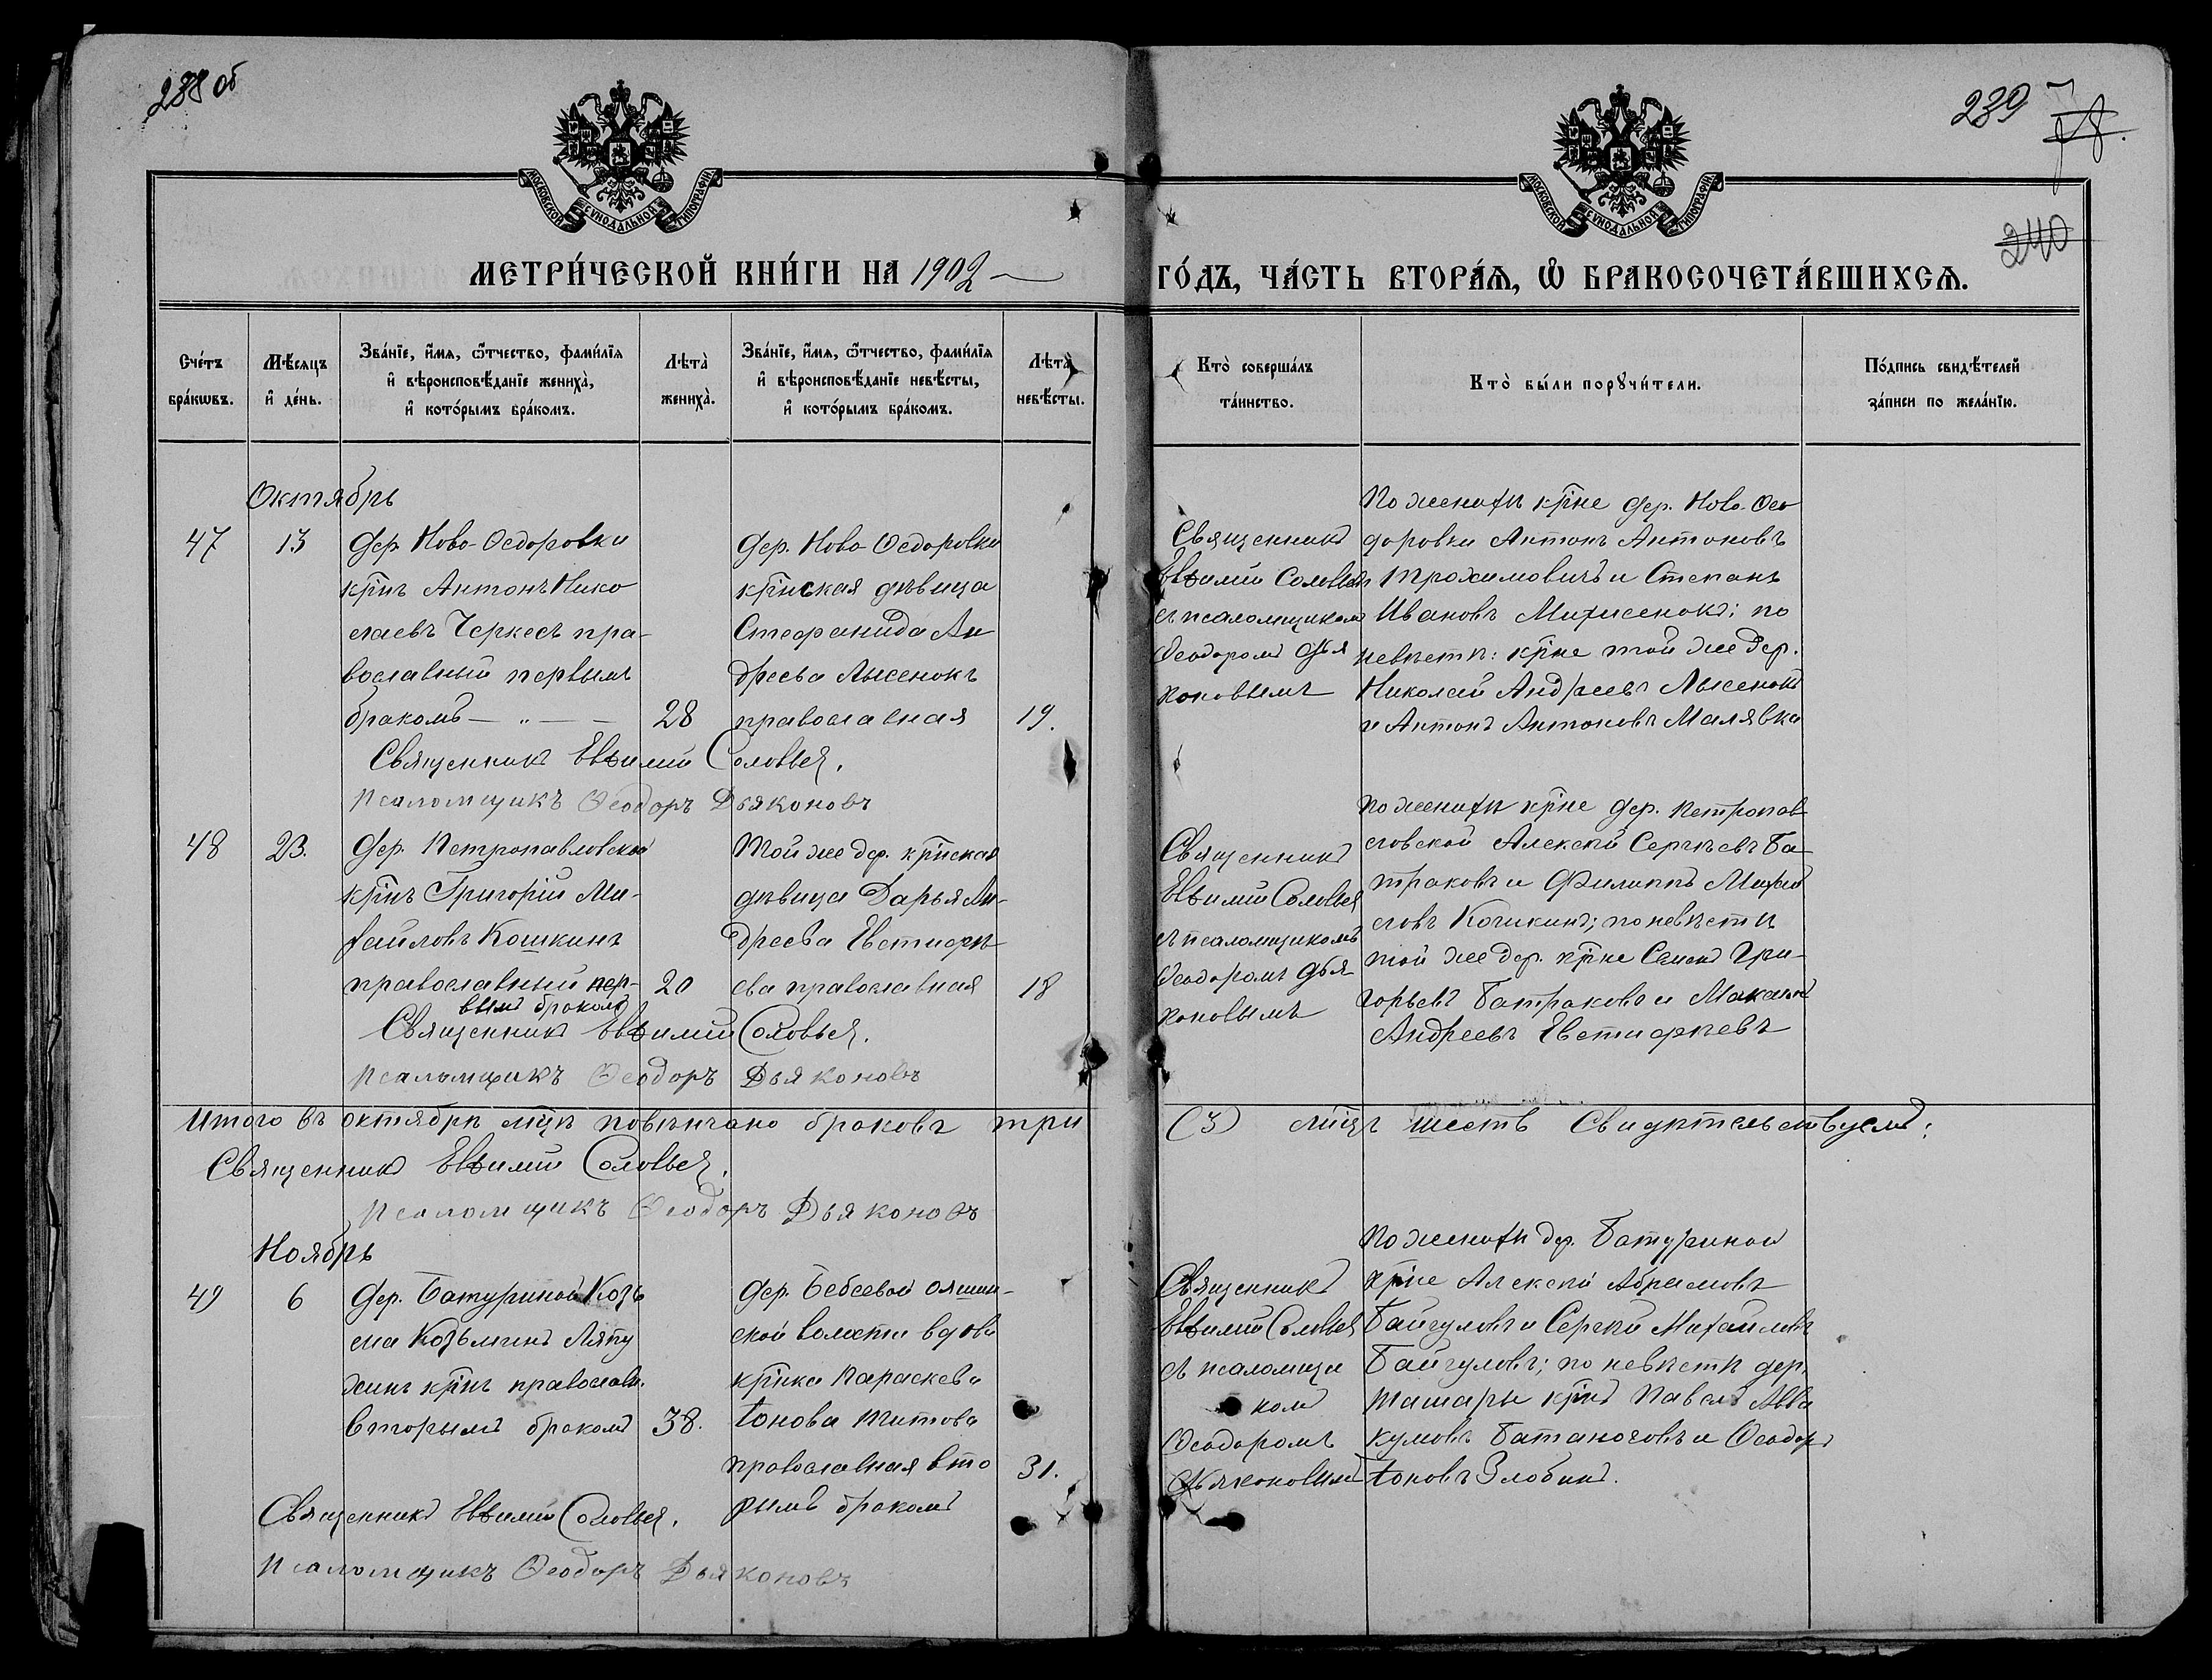 238 об
239
240
МОСКОВСКОЙ СѴНОДАЛЬНОЙ ТИПОГРАФІИ
МОСКОВСКОЙ СѴНОДАЛЬНОЙ ТИПОГРАФІИ
МЕТРИ́ЧЕСКОЙ КНИ́ГИ НА 1902
ГО́ДЪ, ЧА́СТЬ ВТОРА́Ѧ, Ѡ҆ БРАКОСОЧЕТА́ВШИХСѦ.
Сче́тъ бра́кѡвъ.
Мѣ́сяцъ и҆ де́нь.
Зва́нїе, и҆́мѧ, ѻ҆́тчество, фами́лїѧ
и҆ вѣроисповѣ́данїе жениха̀,
и҆ кото́рымъ бра́комъ.
Лѣта̀ жениха̀.
Зва́нїе, и҆́мѧ, ѻ҆́тчество, фами́лїѧ
и҆ вѣроисповѣ́данїе невѣ́сты,
и҆ кото́рымъ бра́комъ.
Лѣта̀ невѣ́сты.
Кто̀ соверша́лъ
та́инство.
Кто̀ бы́ли порꙋчи́тели.
По́дпись свидѣ́телей
за́писи по жела́нїю.
Октябрь
47
13
дер. Ново-Ѳедоровки
крїнъ Антонъ Нико
лаевъ Черкесъ пра-
вославный первымъ
бракомъ — „ — —
28
дер. Ново-Ѳедоровки
крїнская дѣвица
Стефанида Ан
дреева Лысенокъ
православная
19.
Священникъ
Евѳимій Соловьевъ
съ псаломщикомъ
Ѳеодоромъ Дья
коновымъ
По женихѣ крїне дер. Ново-Ѳео
доровки Антонъ Антоновъ
Трохимовичъ и Степанъ
Ивановъ Михисенокъ; по
невѣстѣ: крїне той же дер.
Николай Андреевъ Лысенокъ
и Антонъ Антоновъ Малявка
Священникъ Евѳимій Соловьевъ.
Псаломщикъ Ѳеодоръ Дьяконовъ
48
23.
дер. Петропавловской
крїнъ Григорій Ми-
хайловъ Кошкинъ
православный пер-
вымъ бракомъ
20
Той же дер. крїнская
дѣвица Дарья Ан-
дреева Евстифѣ
ева православная
18
Священникъ
Евѳимій Соловьевъ
съ псаломщикомъ
Ѳеодоромъ Дья-
коновымъ
По женихѣ крїне дер. Петропав
ловской Алексѣй Сергѣевъ Ба-
траковъ и Филиппъ Михай
ловъ Кочикинъ; по невѣстѣ
той же дер. крїне Семенъ Гри-
горьевъ Батраковъ и Макаръ
Андреевъ Евстифѣевъ
Священникъ Евѳимій Соловьевъ.
Псаломщикъ Ѳеодоръ Дьяконовъ
Итого въ октябрѣ мцѣ повѣнчано браковъ три
(3) лицъ шесть Свидѣтельствуемъ:
Священникъ Евѳимій Соловьевъ.
Псаломщикъ Ѳеодоръ Дьяконовъ
Ноябрь
49
6
дер. Батуриной Козь
ма Козьминъ Ляпу
хинъ крїнъ православн.
вторымъ бракомъ
38.
дер. Бебеевой Ояшин-
ской волости вдова
крїнка Параскева
Іонова Титова
православная вто
рымъ бракомъ
31.
Священникъ
Евѳимій Соловьевъ
съ псаломщи
комъ
Ѳеодоромъ
Дьяконовымъ
По женихѣ дер. Батуриной
крїне Алексѣй Абрамовъ
Байгуловъ и Сергѣй Михайловъ
Байгуловъ; по невѣстѣ дер.
Ташары крїнъ Павелъ Авва
кумовъ Батаноговъ и Ѳеодоръ
Іоновъ Злобинъ.
Священникъ Евѳимій Соловьевъ.
Псаломщикъ Ѳеодоръ Дьяконовъ